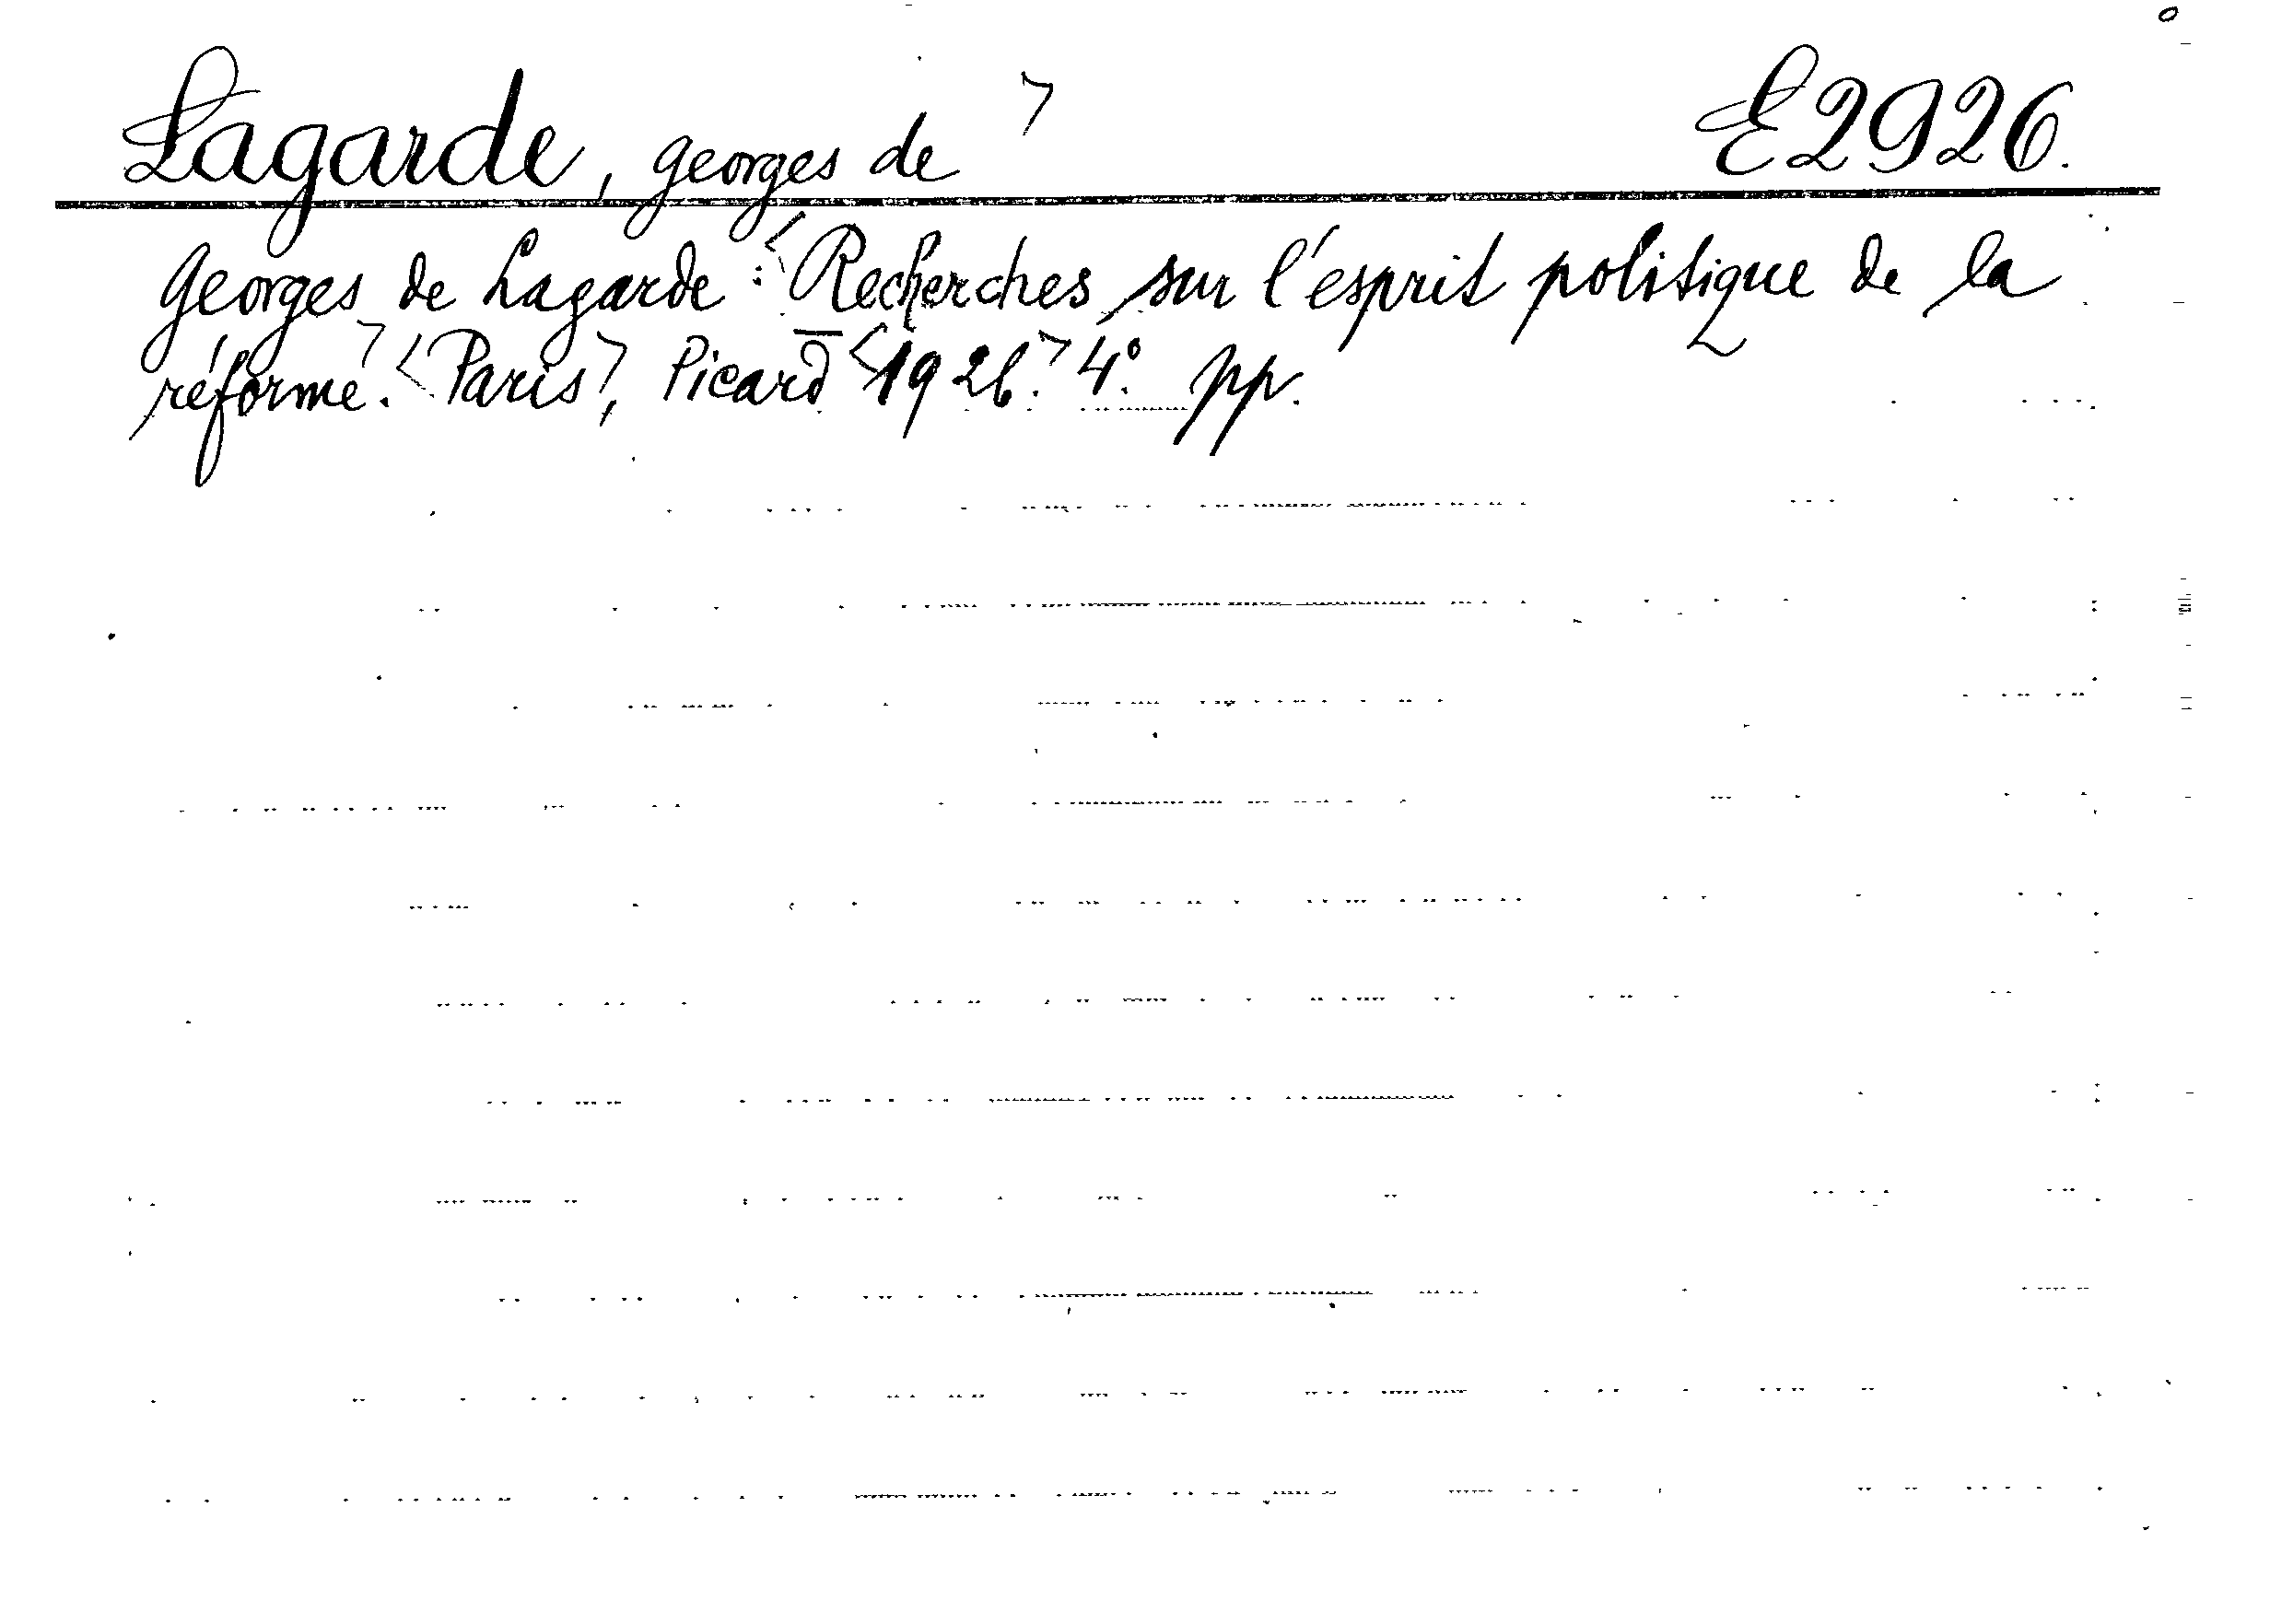 Lagarde, Georges de > E2926.
Georges de Lagarde: <Recherches sur l'esprit politique de la
réforme>. <Paris>, Picard <1926.> 4°. pp.